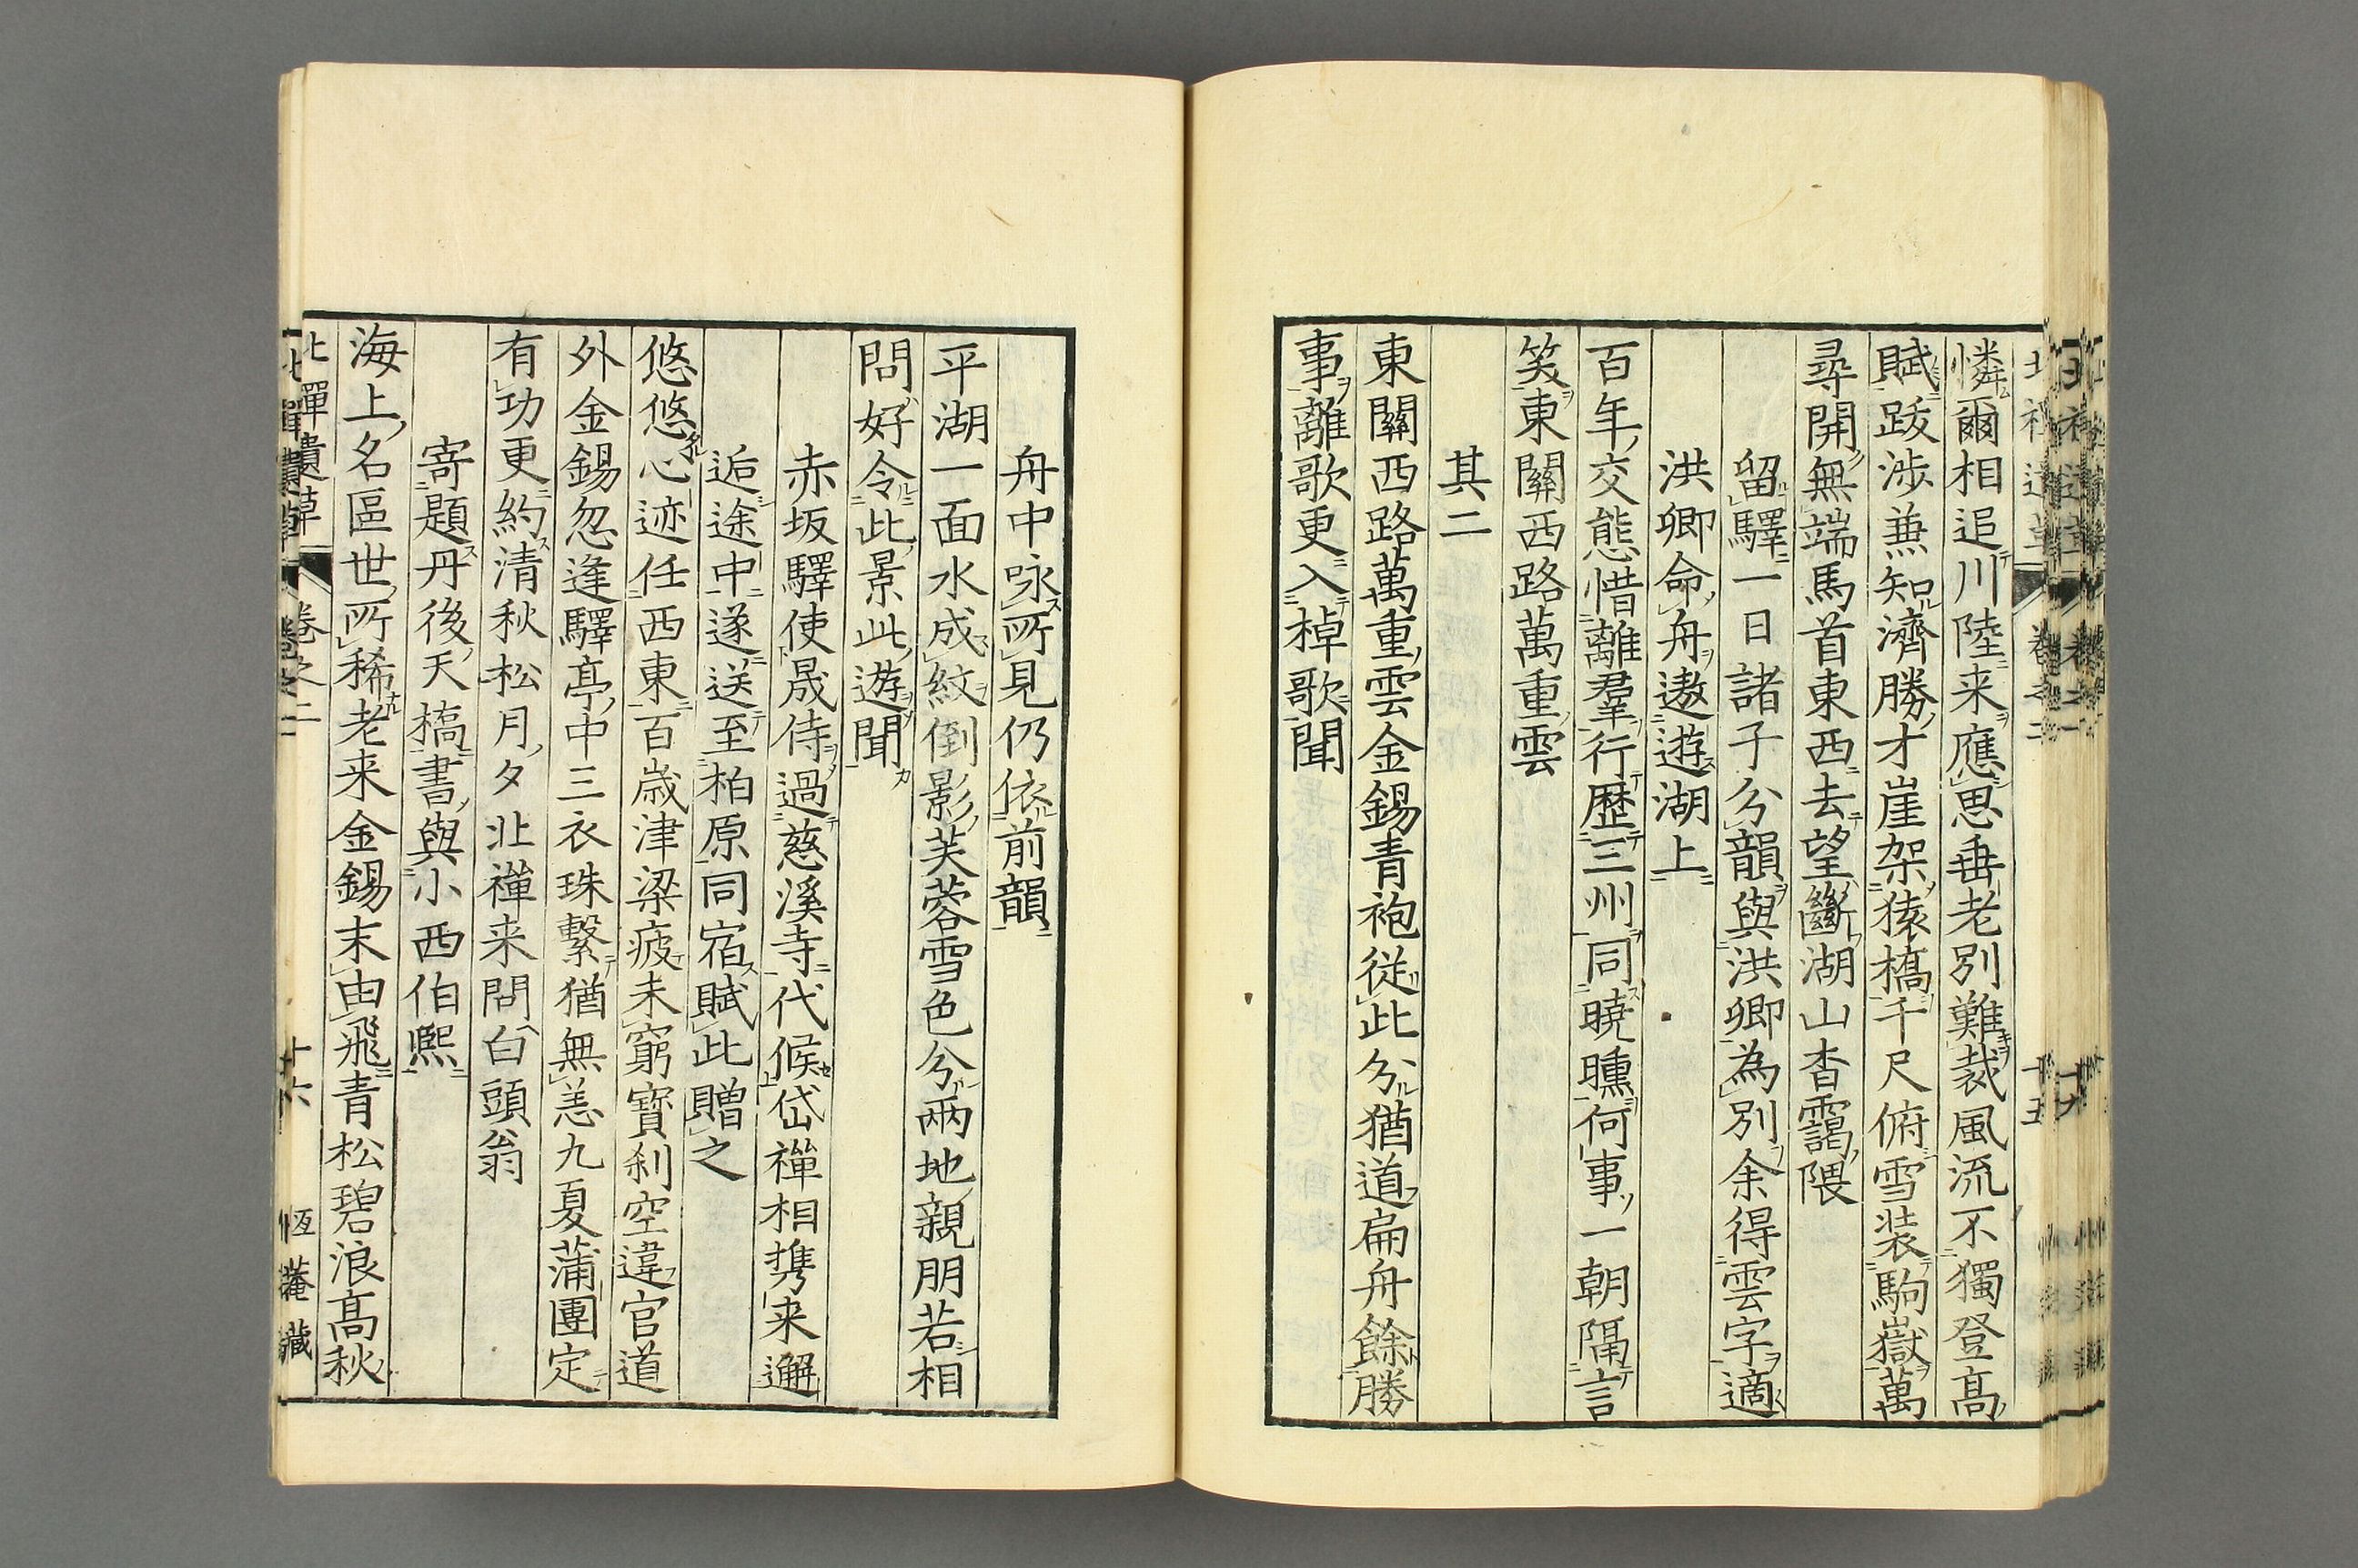 憐爾相追川陸来應思垂老別難裁風流不獨登髙
賦跋渉兼知濟勝才崖架猿橋千尺俯雪装駒嶽萬
尋開無端馬首東西去望斷湖山杳靄隈
留驛一日諸子分韻與洪卿為別余得雲字適
洪卿命舟遨遊湖上
百年交態惜離羣行歴三州同曉曛何事一朝隔言
笑東關西路萬重雲
其二
東關西路萬重雲金錫青袍従此分猶道扁舟餘勝
事離歌更入棹歌聞
舟中咏所見仍依前韻
平湖一面水成紋倒影芙蓉雪色分兩地親朋若相
問好令此景此遊聞
赤坂驛使晟侍過慈溪寺代候岱禅相携来邂
逅途中遂送至柏原同宿賦此贈之
悠悠心迹任西東百歳津梁疲未窮寳刹空違官道
外金錫忽逢驛亭中三衣珠繋猶無恙九夏蒲團定
有功更約清秋松月夕北禅来問白頭翁
寄題丹後天橋書與小西伯熈
海上名區世所稀老来金錫末由飛青松碧浪髙秋
北禪遺草 卷之二 十六 恆菴藏